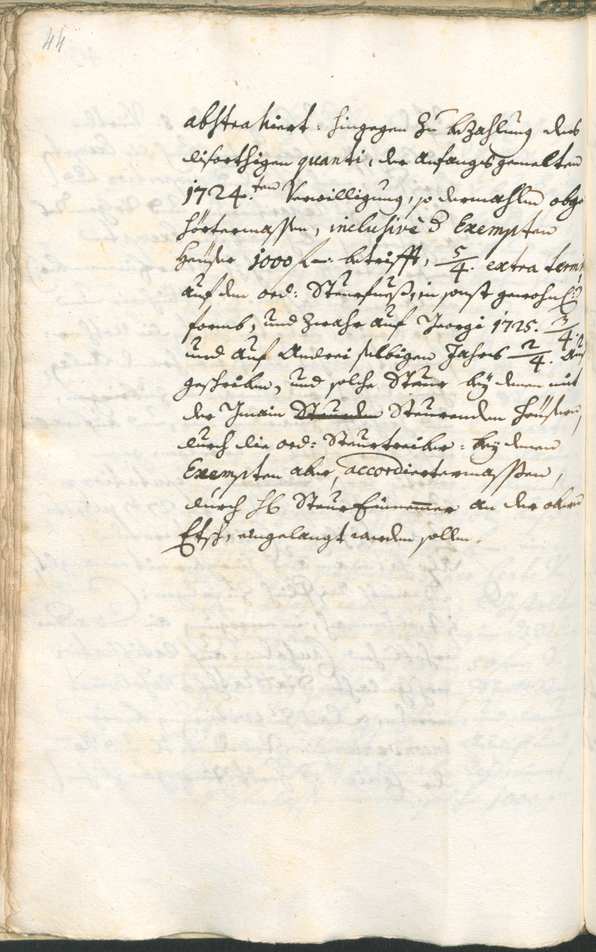 44
abstrahiert: hingegen zu bezahlung des
disorthigen quanti, der anfangs gemelten
1724.ten Verwilligung, so dermahlen obge
hörtermassen, inclusivè d Exempten
heüser 1000 f. betrifft, 5/4. extra term
auf den ord: Steurfueß, in sonst gewohnl:
formb, und zwahr auf Georgi 1725. 3/4.
und auf Andrei selbigen Jahrs 2/4. auß
geschriben, und solche Steur bey denen mit
der Gmain Steurenden heüsern,
durch die ord: Steurtreiber: bey denen
Exempten aber, accordiertermassen,
durch H Steur Einnemmer an der obern
Etsch, eingelangt werden sollen.